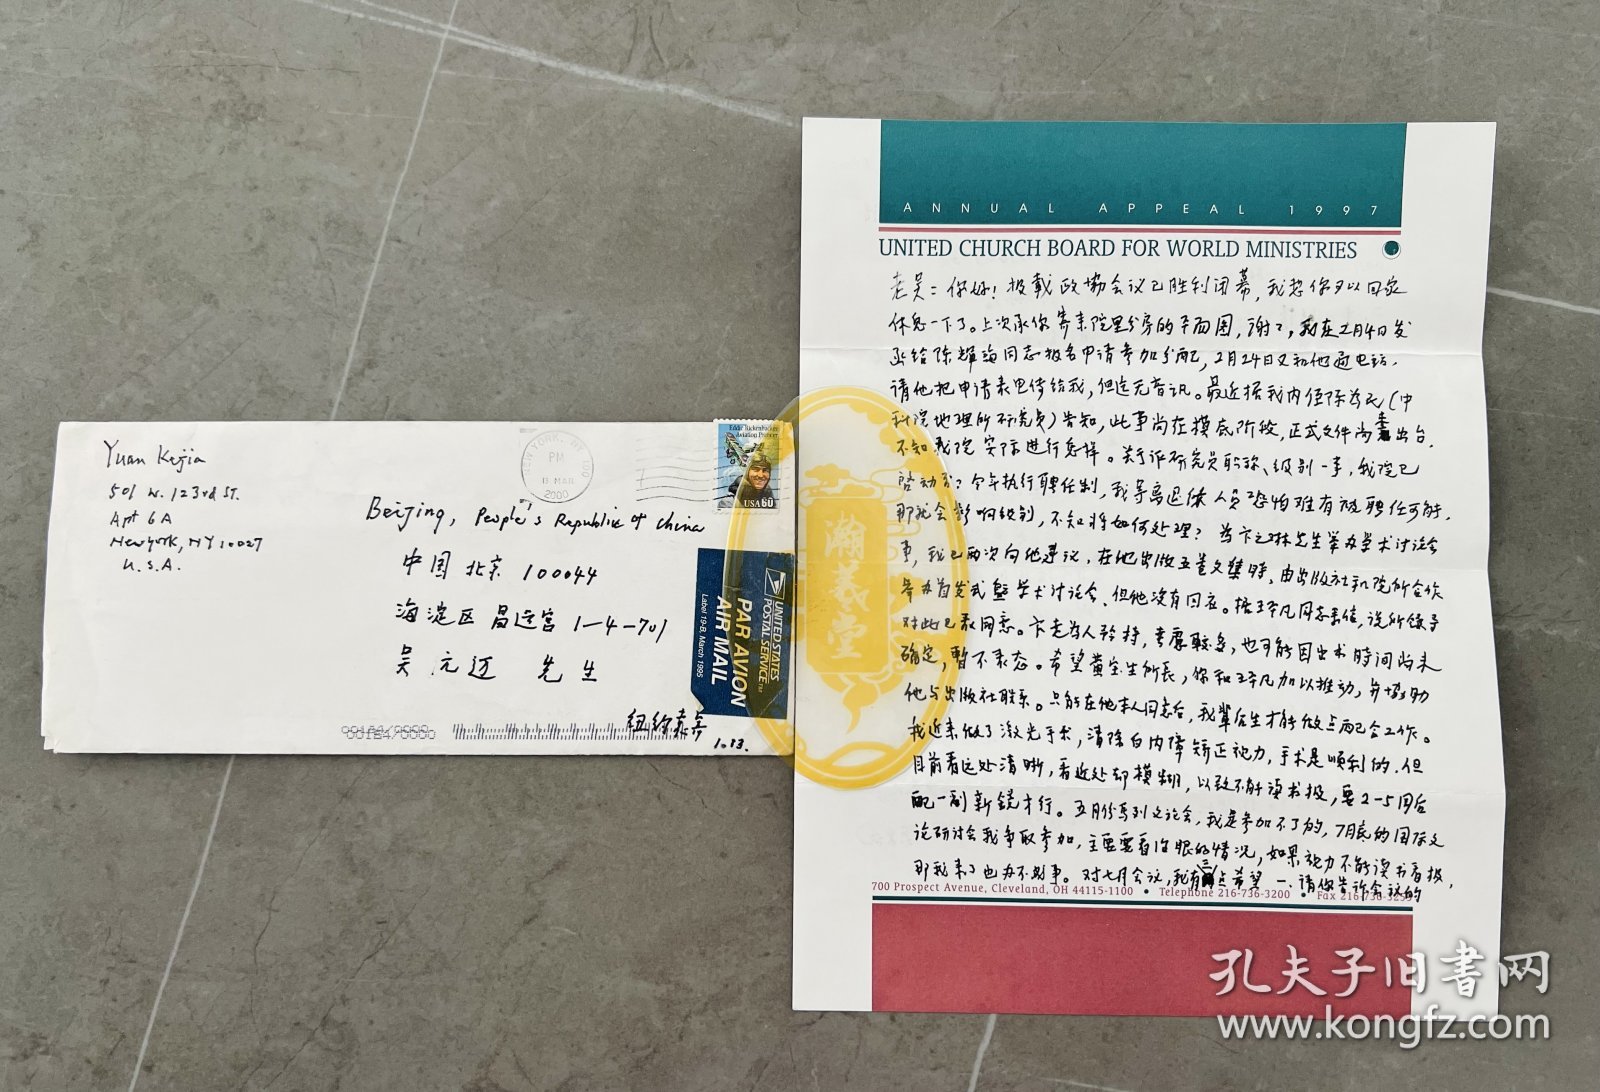 Yuan Kejia
501 W. 123rd ST.
Apt 6A
New York, NY 10027
U.S.A.
NEW YORK, NY 100
PM
13 MAR
2000
Eddie Rickenbacker
Aviation Pioneer
USA 60
Beijing, People's Republic of China
中国 北京 100044
海淀区 昌运宫 1-4-701
吴元迈 先生
纽约袁寄
UNITED STATES
POSTAL SERVICE
PAR AVION
AIR MAIL
Label 19-B, March 1995
ANNUAL APPEAL 1997
UNITED CHURCH BOARD FOR WORLD MINISTRIES
老吴：你好！报载政协会议已胜利闭幕，我想你可以回家
休息一下了。上次承你寄来院里分房的平面图，谢谢，我在2月4日发
函给陈辉同志报名申请参加分配，2月24日又和他通电话，
请他把申请表电传给我，但迄无音讯。最近据我内侄陈为民（中
科院地理所研究员）告知，此事尚在摸底阶段，正式文件尚未出台，
不知我院实际进行怎样。关于评研究员职称、级别一事，我院已
启动否？今年执行聘任制，我等离退休人员恐怕难有被聘任可能，
那就会影响级别，不知将如何处理？为卞之琳先生举办学术讨论会
事，我已两次向他建议，在他出版五卷文集时，由出版社和院所合作
举办首发式暨学术讨论会，但他没有回应。据王平凡同志来信，说所领导
对此已表同意。卞老为人矜持，考虑较多，也可能因出书时间尚未
确定，暂不表态。希望黄宝生所长，你和王平凡加以推动，并协助
他与出版社联系。只能在他本人同意后，我辈后生才能做点配合工作。
我近来做了激光手术，清除白内障矫正视力，手术是顺利的，但
目前看远处清晰，看近处却模糊，以致不能读书报，要2-5周后
配一副新镜才行。五月份马列文论会，我是参加不了的，7月底的国际文
论研讨会我争取参加，主要要看治眼的情况，如果视力不能读书看报，
那我来了也办不成事。对七月会议，我有三点希望 一、请你告诉会议的
700 Prospect Avenue, Cleveland, OH 44115-1100 • Telephone 216-736-3200 • Fax 216-736-3259
瀚羲堂
孔夫子旧书网
www.kongfz.com